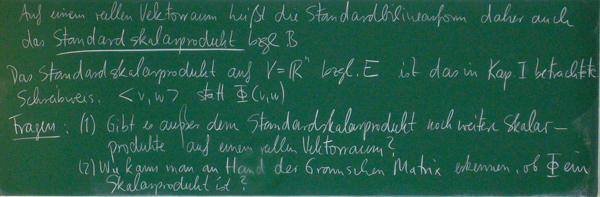 Auf einem reellen Vektorraum heißt die Standardbilinearform daher auch
das Standardskalarprodukt bzgl B
Das Standardskalarprodukt auf V=ℝⁿ bzgl. E ist das in Kap. I betrachtete
Schreibweis. <v,w> statt Φ(v,w)
Fragen: (1) Gibt es außer dem Standardskalarprodukt noch weitere Skalar-
produkte auf einem reellen Vektorraum?
(2) Wie kann man an Hand der Gramschen Matrix erkennen, ob Φ ein
Skalarprodukt ist?